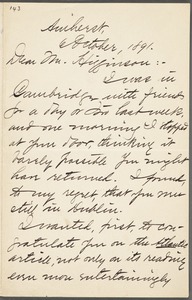 143
Amherst.
October, 1891.
Dear Mr. Higginson:-
I was in
Cambridge with friends
for a day or two last week
and one morning I stopped
at your door, thinking it
barely possible you might
have returned. I found,
to my regret, that you were
still in Dublin.
I wanted, first, to con-
gratulate you on the
article, not only on its reading
even more entertainingly